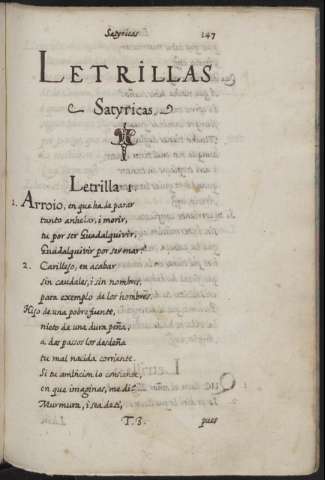 Satyricas 147
LETRILLAS
Satyricas
Letrilla 1
1. Arroio, en que ha de parar
tanto anhelar, i morir,
tu por ser Guadalquivir,
Guadalquivir por ser mar?
2. Carillejo, en acabar
sin caudales, i sin nombres,
para exemplo de los hombres.
Hijo de una pobre fuente,
nieto de una dura peña,
a dos passos los desdeña
tu mal nacida corriente.
Si tu ambicion lo consiente,
en que imaginas, me di?
Murmura, i sea de ti,
T. 3. pues